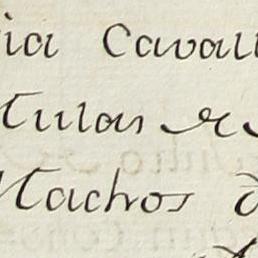 ia Cavall
tulas &
Machos d